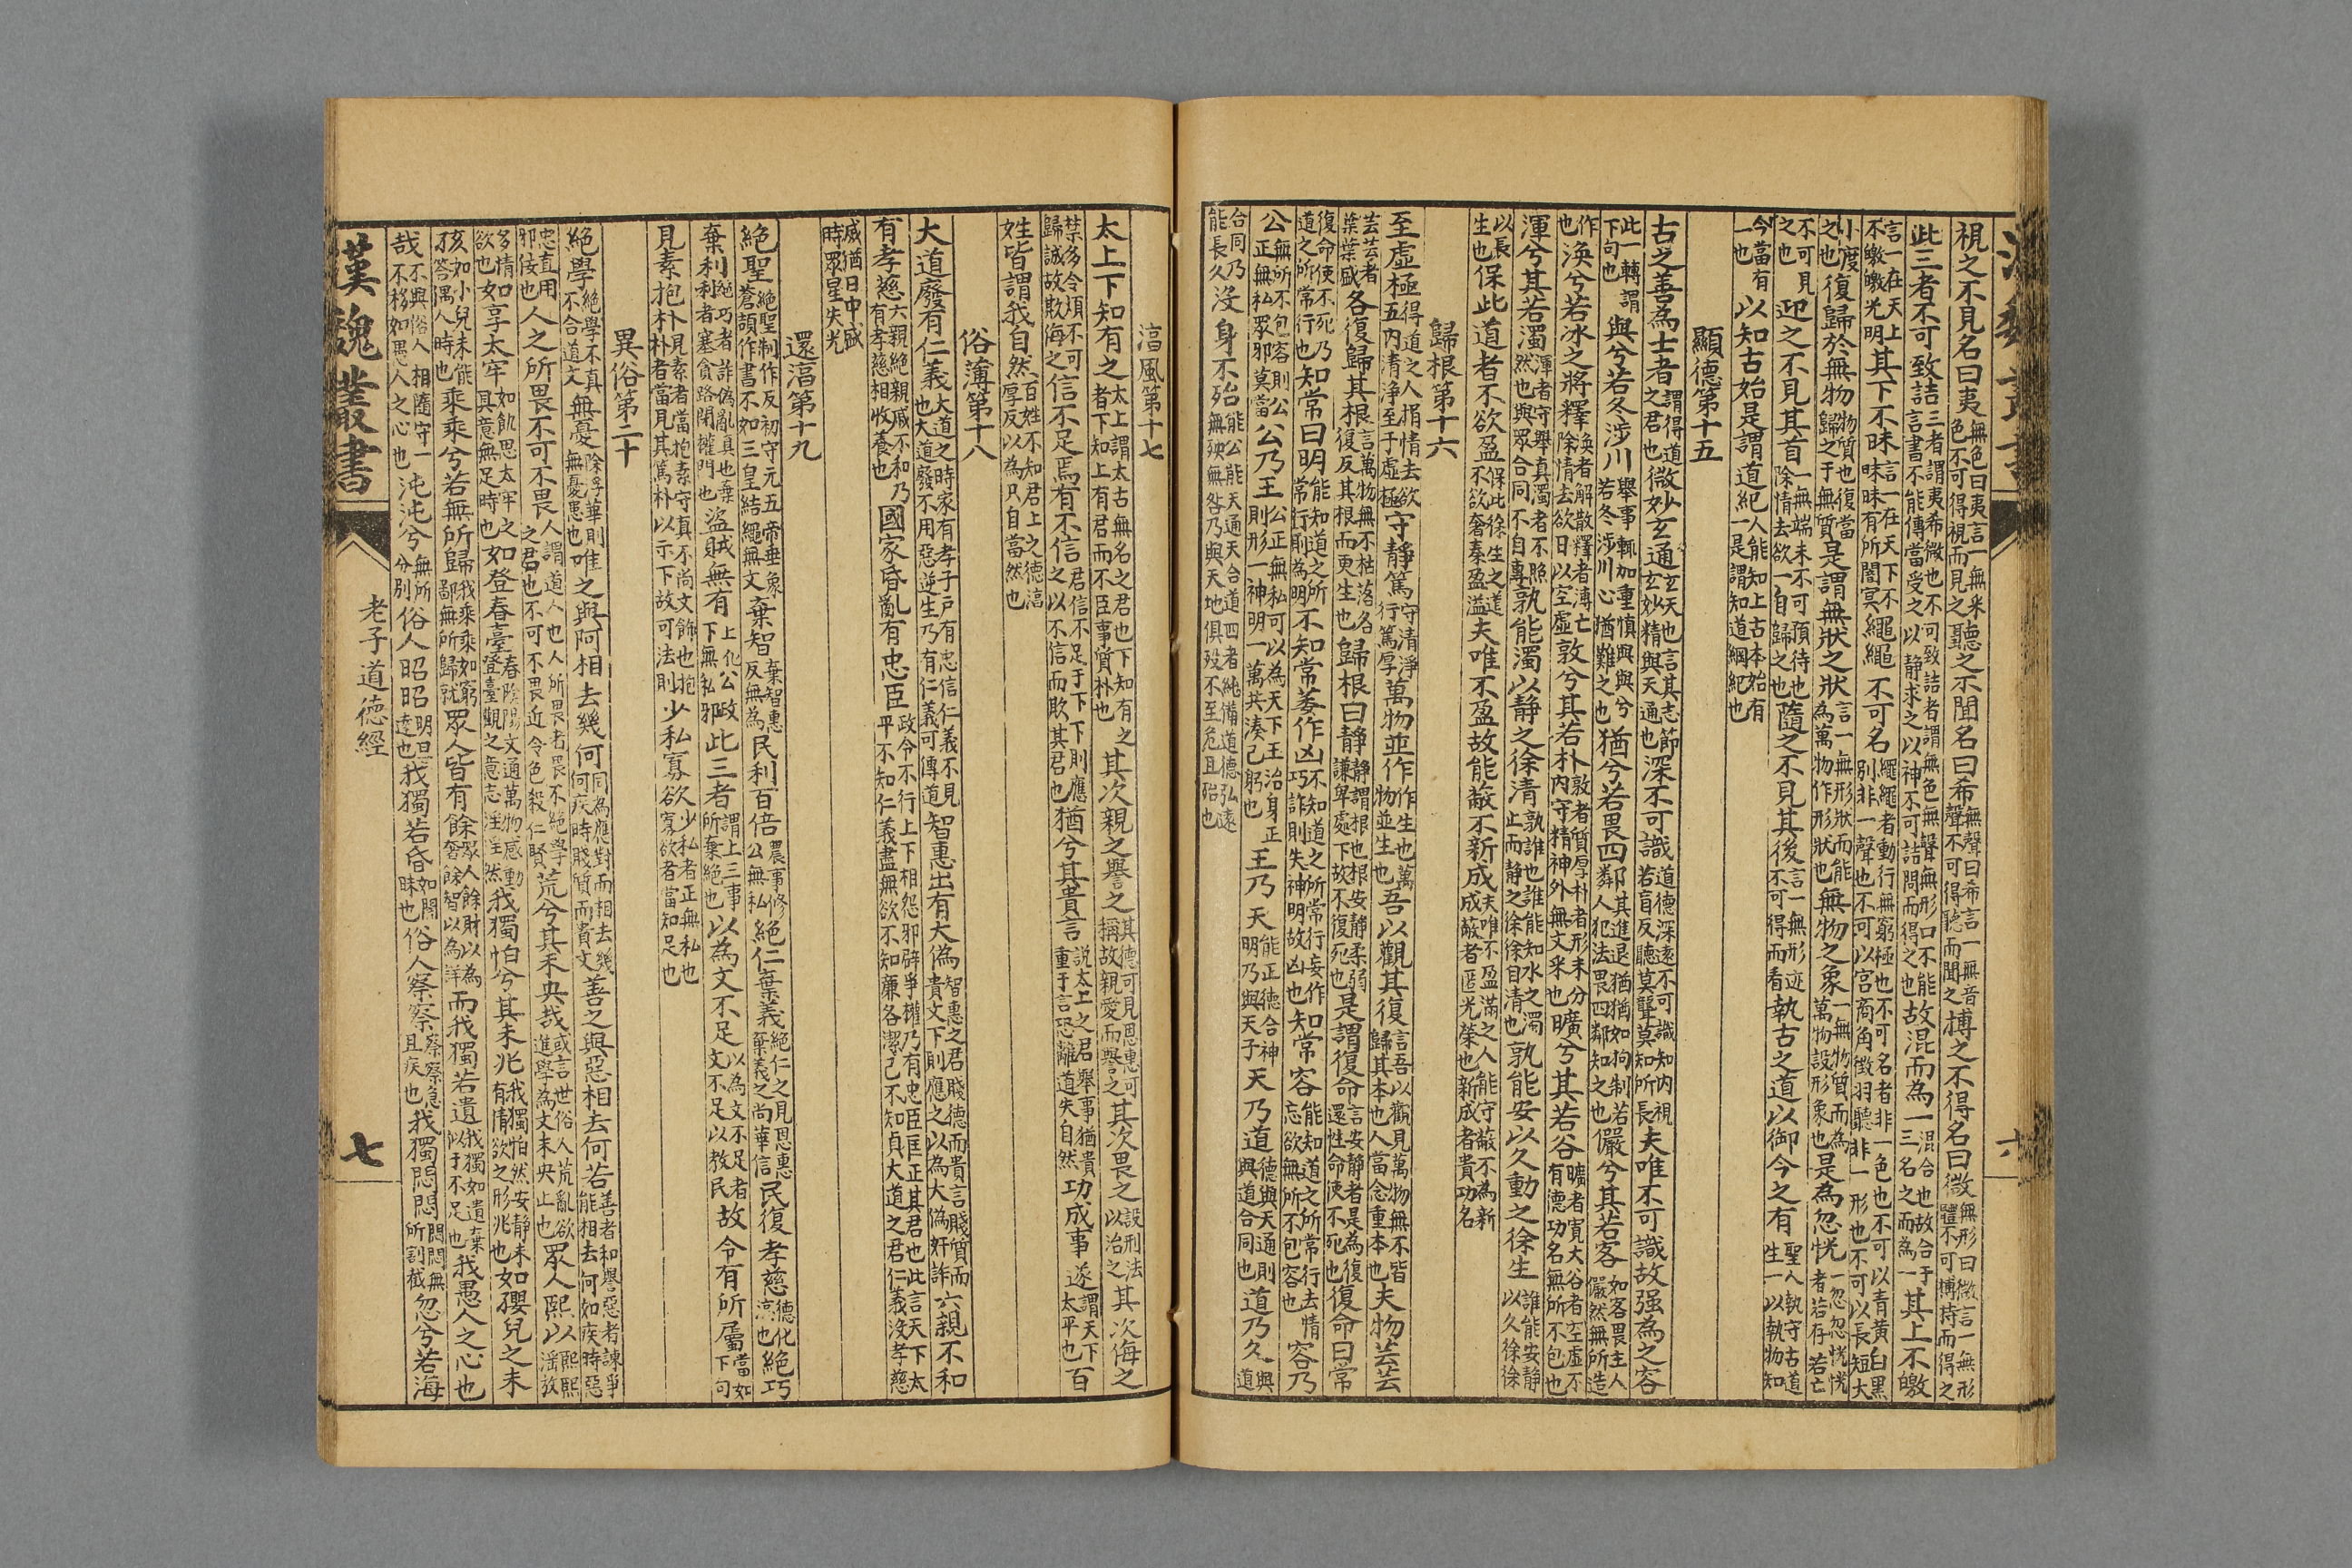 視之不見名曰夷無色曰夷言一無采色不可得視而見之聽之不聞名曰希無聲曰希言一無音聲不可得聽而聞之搏之不得名曰微無形曰微言一無形體不可搏持而得之
此三者不可致詰三者謂夷希微也不可致詰者謂無色無聲無形口不能言書不能傳當受之以靜求之以神不可詰問而得之也故混而為一混合也故合于三名之而為一其上不皦
言一在天上不皦皦光明其下不昧言一在天下不昧昧有所闇冥繩繩不可名繩繩者動行無窮極也不可名者非一色也不可以青黃白黑別非一聲也不可以宮商角徵羽聽非一形也不可以長短大
小度之也復歸於無物物質也復當歸之于無質是謂無狀之狀言一無形狀而能為萬物作形狀也無物之象一無物質而為萬物設形象也是為忽恍一忽忽恍恍者若存若亡
不可見之也迎之不見其首一無端末不可預待也除情去欲一自歸之也隨之不見其後言一無形迹不可得而看執古之道以御今之有聖人執守古道生一以執物知
今當有一也以知古始是謂道紀人能知上古本始有一是謂知道綱紀也
顯德第十五
古之善為士者謂得道之君也微妙玄通玄天也言其志節玄妙精與天通也深不可識道德深遠不可識知内視若盲反聽莫聾莫知所長夫唯不可識故强為之容
此一轉謂下句也與兮若冬涉川舉事輒加重慎與與兮若冬涉川心猶難之也猶兮若畏四鄰其進退猶猶如拘制若人犯法畏四鄰知之也儼兮其若客如客畏主人儼然無所造
作也渙兮若冰之將釋渙者解散釋者溥亡除情去欲日以空虛敦兮其若朴敦者質厚朴者形未分内守精神外無文采也曠兮其若谷曠者寬大谷者空虛不有德功名無所不包也
渾兮其若濁渾者守舉真濁者不照然也與眾合同不自專孰能濁以靜之徐清孰誰也誰能知水之濁止而靜之徐徐自清也孰能安以久動之徐生誰能安靜以久徐徐
以長生也保此道者不欲盈保此徐生之道不欲奢泰盈溢夫唯不盈故能蔽不新成夫唯不盈滿之人能守蔽不為新成蔽者匿光榮也新成者貴功名
歸根第十六
至虛極得道之人捐情去欲五内清淨至于虛極守靜篤守清淨行篤厚萬物並作作生也萬物並生也吾以觀其復言吾以觀見萬物無不皆歸其本也人當念重本也夫物芸芸
芸芸者葉葉盛各復歸其根言萬物無不枯落各復反其根而更生也歸根曰靜靜謂根也根安靜柔弱謙卑處下故不復死也是謂復命言安靜者是為復還性命使不死也復命曰常
復命使不死乃道之所常行也知常曰明能知道之所常行則為明不知常萎作凶不知道之所常行妄作巧詐則失神明故凶也知常容能知道之所常行去情忘欲無所不包容也容乃
公無所不包容則公正無私眾邪莫當公乃王公正無私可以為天下王治身正則形一神明一萬共湊己躬也王乃天能正德合神明乃與天子天乃道德與天通則與道合同也道乃久與道
合同乃能長久沒身不殆能公能天通天合道四者純備道德弘遠無殃無咎乃與天地俱歿不至危且殆也
淳風第十七
太上下知有之太上謂太古無名之君也下知有之者下知上有君而不臣事質朴也其次親之譽之其德可見恩惠可稱故親愛而譽之其次畏之設刑法以治之其次侮之
禁多令煩不可歸誠故欺侮之信不足焉有不信君信不足于下下則應之以不信而欺其君也猶兮其貴言說太上之君舉事猶貴重于言恐離道失自然功成事遂謂天下太平也百
姓皆謂我自然百姓不知君上之德淳厚反以為只自當然也
俗薄第十八
大道廢有仁義大道之時家有孝子戶有忠信仁義不見也大道廢不用惡逆生乃有仁義可傳道智惠出有大偽智惠之君賤德而貴言賤質而貴文下則應之以為大偽奸詐六親不和
有孝慈六親絕親戚不和乃有孝慈相收養也國家昏亂有忠臣政令不行上下相怨邪辟爭權乃有忠臣匡正其君也此言天下太平不知仁義盡無欲不知廉各潔己不知貞大道之君仁義沒孝慈
滅猶日中盛時眾星失光
還淳第十九
絕聖絕聖制作反初守元五帝垂象蒼頡作書不如三皇結繩無文棄智棄智惠反無為民利百倍農事修公無私絕仁棄義絕仁之見恩惠棄義之尚華信民復孝慈德化淳也絕巧
棄利絕巧者詐偽亂真也棄利者塞貪路閉權門也盜賊無有上化公政下無私邪此三者謂上三事所棄絕也以為文不足以為文不足者文不足以教民故令有所屬當如下句
見素抱朴見素者當抱素守真不尚文飾也抱朴者當見其篤朴以示下故可法則少私寡欲少私者正無私也寡欲者當知足也
異俗第二十
絕學絕學不真不合道文無憂除浮華則無憂患也唯之與阿相去幾何同為應對而相去幾何疾時賤質而貴文善之與惡相去何若善者和譽惡者諫爭能相去何如疾時惡
忠直用邪佞也人之所畏不可不畏人謂道人也人所畏者畏不絕學之君也不可不畏近令色殺仁賢荒兮其未央哉或言世俗人荒亂欲進學為文未央止也眾人熙以熙熙淫放
多情欲也如享太牢如飲思太牢之具意無足時也如登春臺春陰陽交通萬物感動登臺觀之意志淫淫然我獨怕兮其未兆我獨怕然安靜未有情欲之形兆也如嬰兒之未
孩如小兒未能答偶人時也乘乘兮若無所歸我乘乘如窮鄙無所歸就眾人皆有餘眾人餘財以為奢餘智以為詐而我獨若遺我獨如遺棄似于不足也我愚人之心也
哉不與俗人相隨守一不移如愚人之心也沌沌兮無所分別俗人昭昭明且達也我獨若昏如闇昧也俗人察察察察急且疾也我獨悶悶悶悶無所割截忽兮若海
漢魏叢書
老子道德經
七